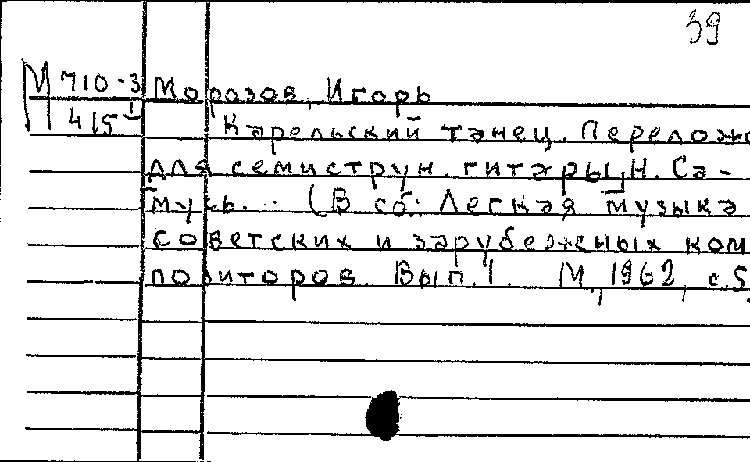 39
М 710-3 Морозов, Игорь
415 I Карельский танец. Перелож
для семиструн. гитары Н. Са-
мусь... (В сб: Легкая музыка
советских и зарубежных ком
позиторов. Вып. 1. М., 1962, с.5